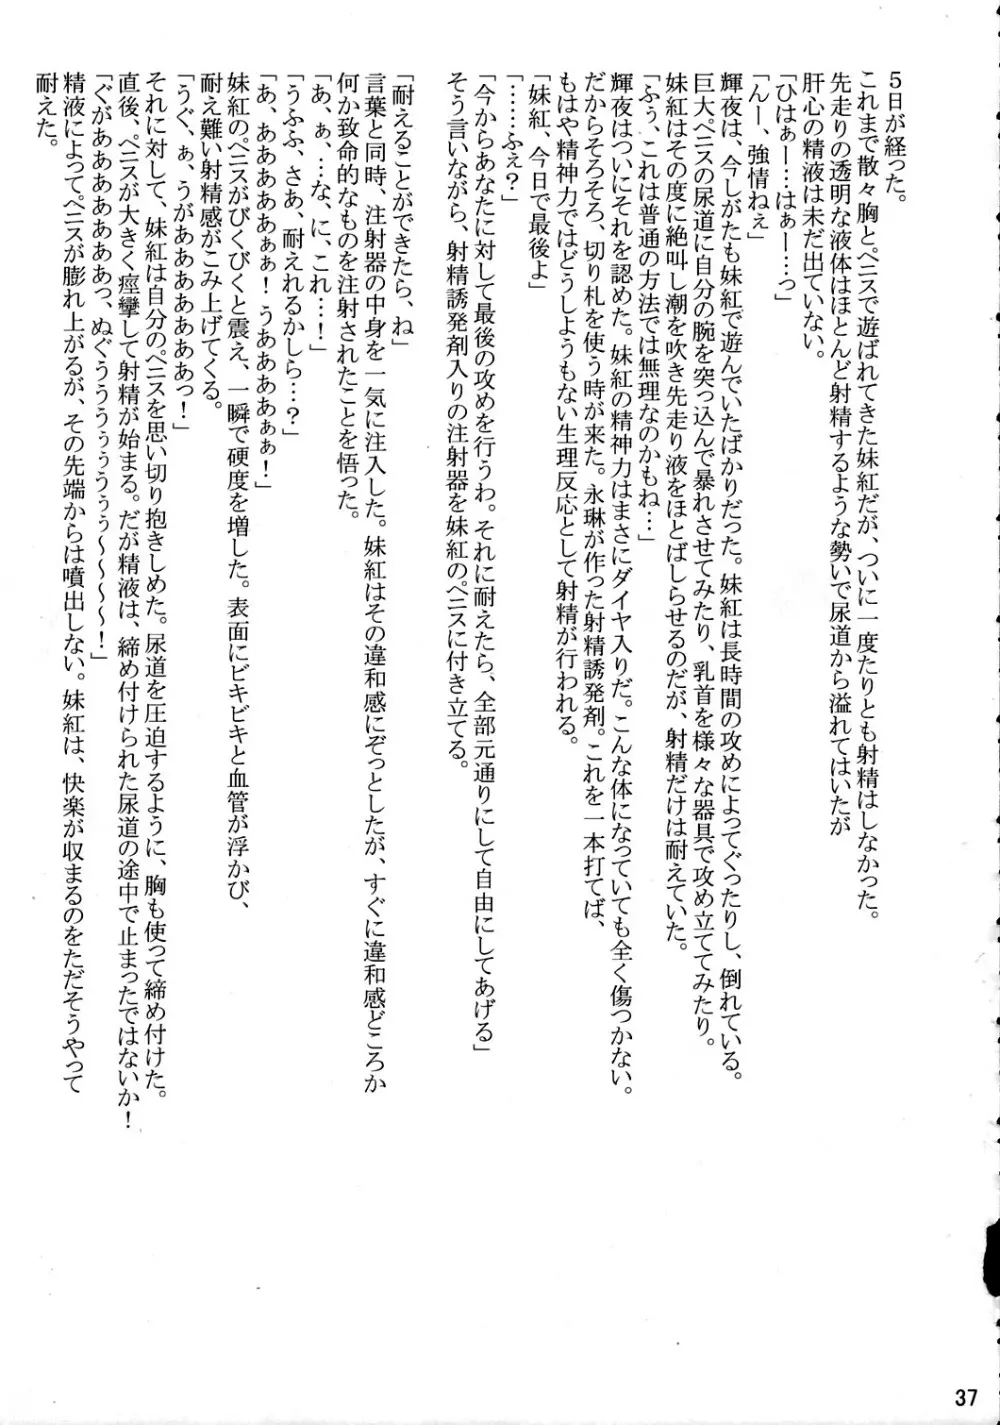 ５日が経った。
これまで散々胸とペニスで遊ばれてきた妹紅だが、ついに一度たりとも射精はしなかった。
先走りの透明な液体はほとんど射精するような勢いで尿道から溢れてはいたが
肝心の精液は未だ出ていない。
「ひはぁー…はぁー…っ」
「んー、強情ねぇ」
輝夜は、今しがたも妹紅で遊んでいたばかりだった。妹紅は長時間の攻めによってぐったりし、倒れている。
巨大ペニスの尿道に自分の腕を突っ込んで暴れさせてみたり、乳首を様々な器具で攻め立ててみたり。
妹紅はその度に絶叫し潮を吹き先走り液をほとばしらせるのだが、射精だけは耐えていた。
「ふぅ、これは普通の方法では無理なのかもね…」
輝夜はついにそれを認めた。妹紅の精神力はまさにダイヤ入りだ。こんな体になっていても全く傷つかない。
だからそろそろ、切り札を使う時が来た。永琳が作った射精誘発剤。これを一本打てば、
もはや精神力ではどうしようもない生理反応として射精が行われる。
「妹紅、今日で最後よ」
「……ふぇ？」
「今からあなたに対して最後の攻めを行うわ。それに耐えたら、全部元通りにして自由にしてあげる」
そう言いながら、射精誘発剤入りの注射器を妹紅のペニスに付き立てる。
「耐えることができたら、ね」
言葉と同時、注射器の中身を一気に注入した。妹紅はその違和感にぞっとしたが、すぐに違和感どころか
何か致命的なものを注射されたことを悟った。
「あ、ぁ、…な、に、これ…！」
「うふふ、さあ、耐えれるかしら…？」
「あ、ああああああぁぁ！うああああぁぁ！」
妹紅のペニスがびくびくと震え、一瞬で硬度を増した。表面にビキビキと血管が浮かび、
耐え難い射精感がこみ上げてくる。
「うぐ、ぁ、うがああああああああっ！」
それに対して、妹紅は自分のペニスを思い切り抱きしめた。尿道を圧迫するように、胸も使って締め付けた。
直後、ペニスが大きく痙攣して射精が始まる。だが精液は、締め付けられた尿道の途中で止まったではないか！
「ぐがあああああああああっ、ぬぐうううぅぅうぅぅ～～～～～！」
精液によってペニスが膨れ上がるが、その先端からは噴出しない。妹紅は、快楽が収まるのをただそうやって
耐えた。
37